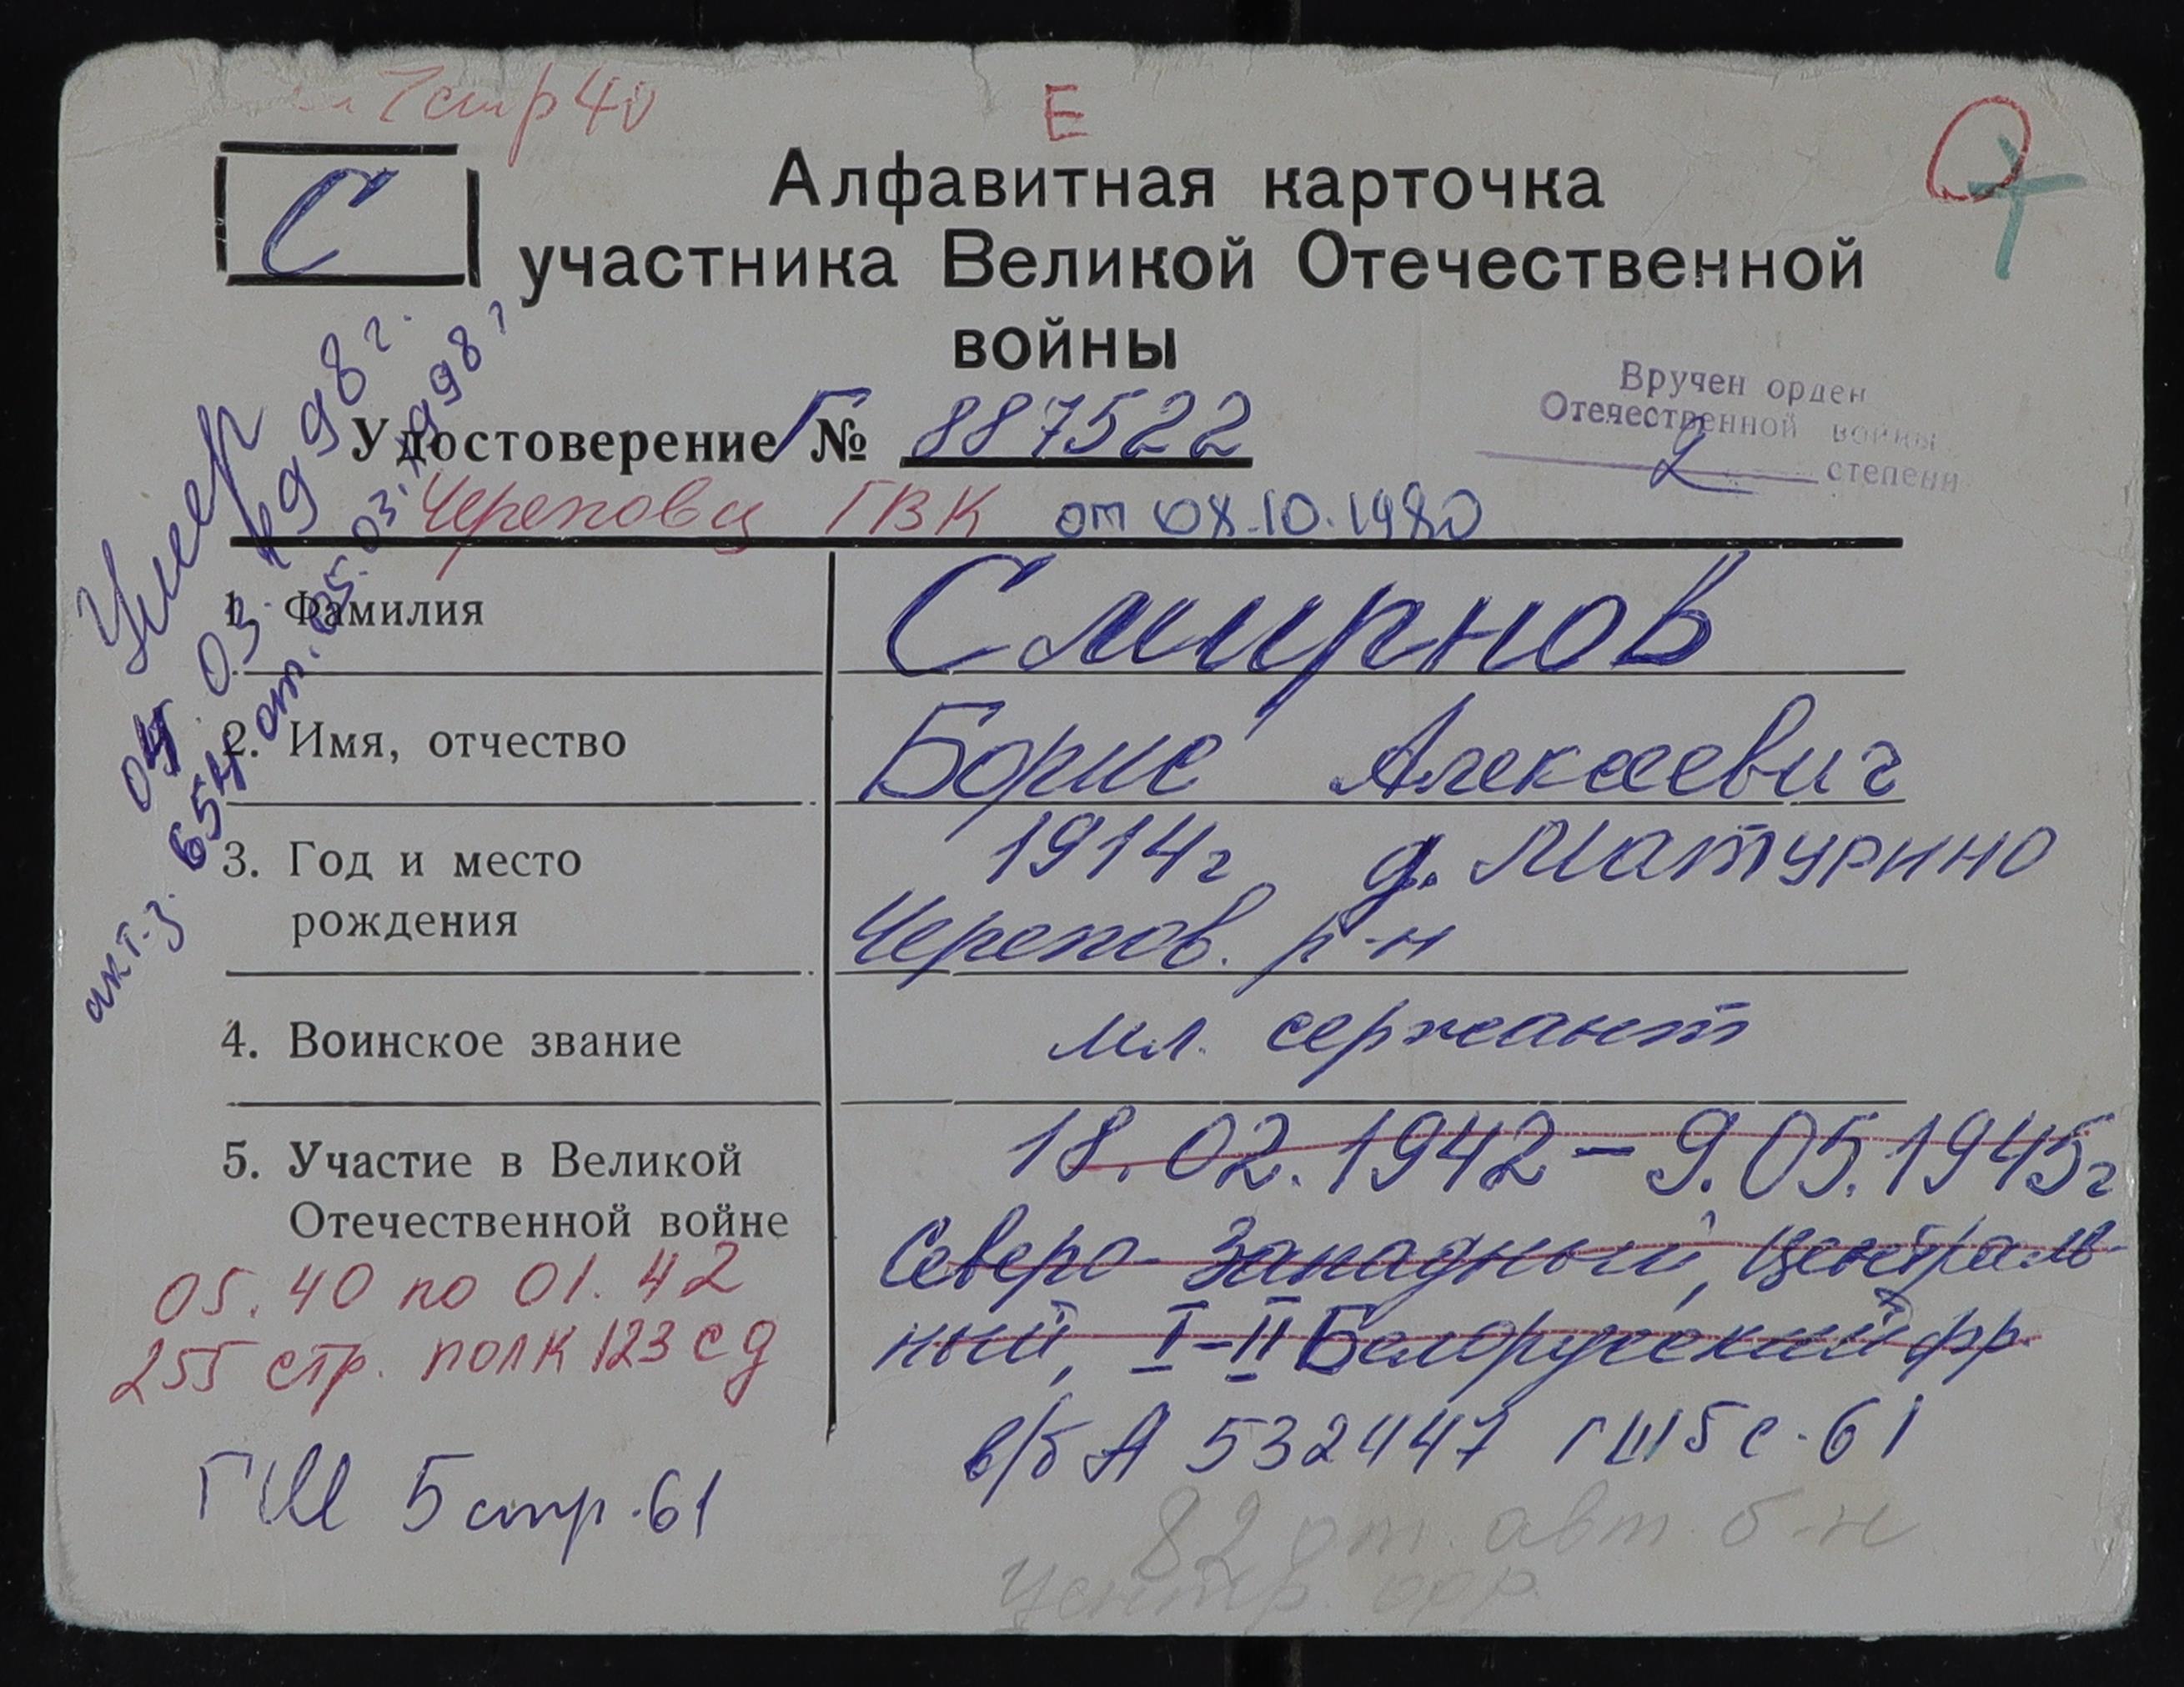 7 стр 40
Е
С
Алфавитная карточка
участника Великой Отечественной
войны
Удостоверение Г № 887522
Вручен орден
Отечественной войны
2 степени
Череповец ГВК от 08.10.1980
Умер
04.03.1998 г.
акт.з. 654 от. 05.03.1998 г
1. Фамилия
Смирнов
2. Имя, отчество
Борис Алексеевич
3. Год и место
рождения
1914г д. Матурино
Черепов. р-н
4. Воинское звание
мл. сержант
5. Участие в Великой
Отечественной войне
18.02.1942 - 9.05.1945г
Северо-Западный, Централь
ный, I-II Белорусский фр
05.40 по 01.42
255 стр. полк 123 сд
в/б А 532447 ГШ 5 с. 61
ГШ 5 стр. 61
82 от. авт. б-н
Центр. фр.